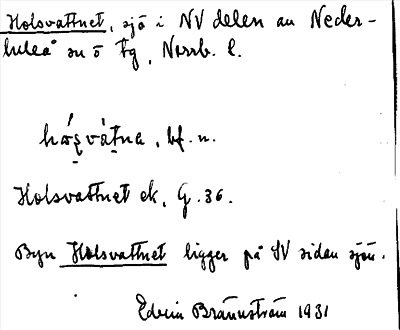 Holsvattnet, sjö i NV delen av Neder-
luleå sn o fg, Norrb. l.
bf. n.
Holsvattnet ek, G. 36.
Byn Holsvattnet ligger på SV sidan sjön.
Edvin Brännström 1931